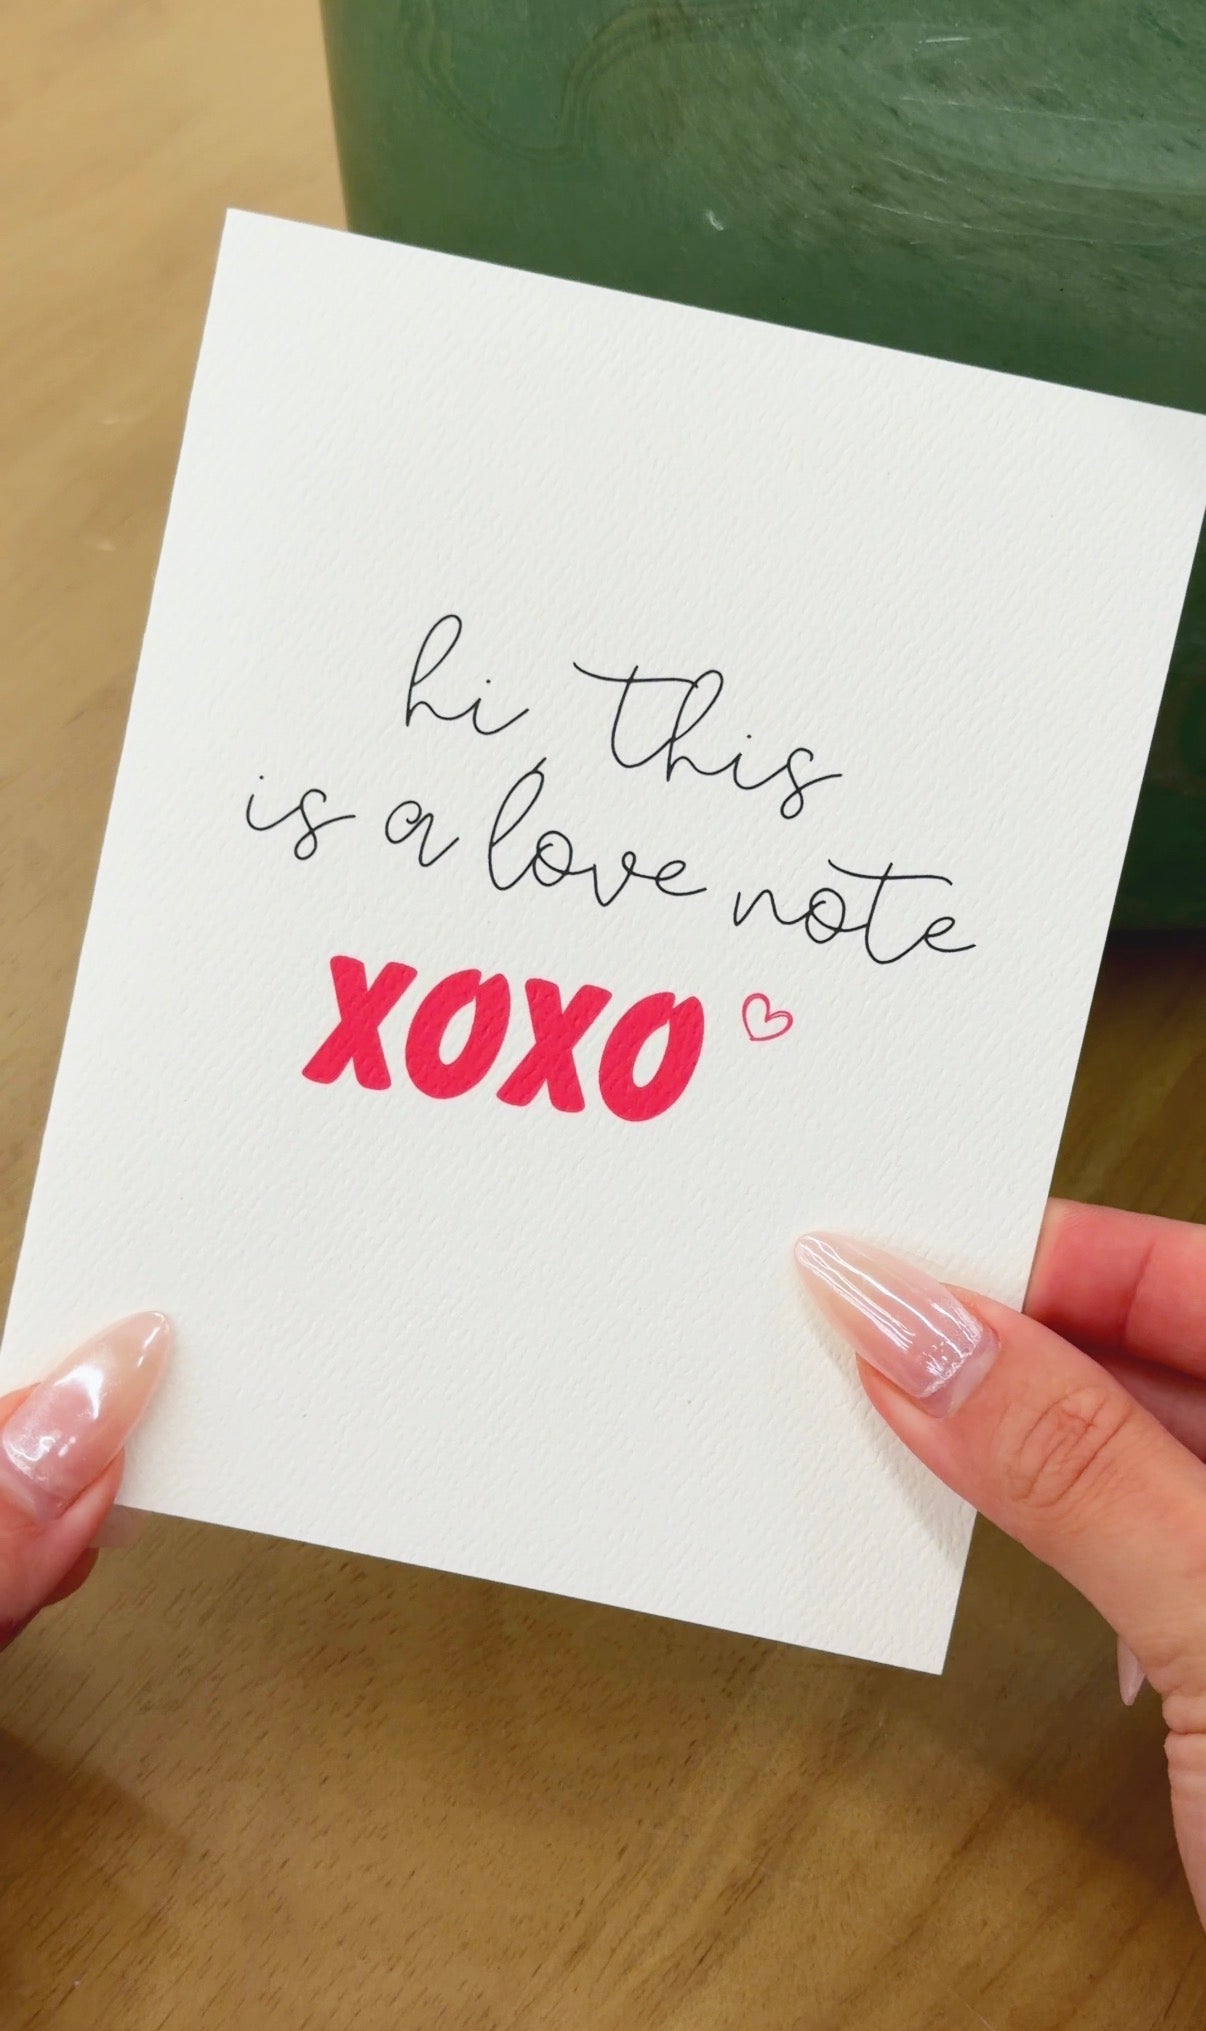 hi, this
is a love note
XOXO ♡